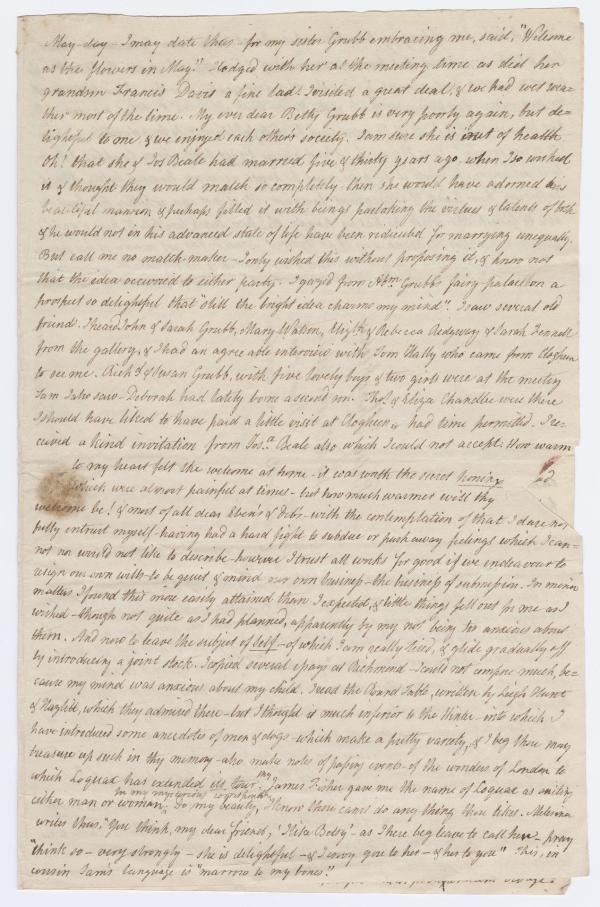 May-day - I may date thus - for my sister Grubb embracing me, said, "Welcome
as the flowers in May." I lodged with her at the meeting time as did her
grandson Francis Davis a fine lad. I visited a great deal, & we had wet wea=
ther most of the time. My ever dear Betsy Grubb is very poorly again, but de=
lightful to me & we enjoyed each other's society. I am sure she is in of health
Oh! that she & Jos Beale had married five & thirty years ago when I so wished
it & thought they would match so completely - then she would have adorned his
beautiful mansion & perhaps filled it with beings partaking the virtues & talents of both
& he would not in his advanced state of life have been ridiculed for marrying unequally.
But call me no match-maker - I only wished this without proposing it, & know not
that the idea occurred to either party. I gazed from Abm Grubb's fairy palace on a
prospect so delightful that "still the bright idea charms my mind". I saw several old
friends. I heard John & Sarah Grubb, Mary Watson, Elizth & Rebecca Ridgway & Sarah Fennell
from the gallery, & I had an agreeable interview with Tom Hally who came from Clogheen
to see me. Richd & Susan Grubb, with five lovely boys & two girls were at the meeting
Sam I also saw - Deborah had lately borne a second son. Thos & Eliza Chandlee were there
I should have liked to have paid a little visit at Clogheen, had time permitted. I re=
ceived a kind invitation from Josa Beale also which I could not accept. How warm
to my heart felt the welcome at home - it was worth the secret honings
which were almost painful at times - but how much warmer will thy
welcome be! & most of all dear Eben's & Deb's - with the contemplation of that I dare not
fully entrust myself - having had a hard fight to subdue or push away feelings which I can=
not nor would not like to describe - however I trust all works for good if we endeavour to
resign our own wills - to be quiet & mind our own business - the business of submission. In minor
matters I found this more easily attained than I expected, & little things fell out for me as I
wished - though not quite as I had planned, apparently by my not being too anxious about
them. And now to leave the subject of self - of which I am really tired, & glide gradually off
by introducing a joint stock. I copied several essays at Richmond - I could not compose much, be=
cause my mind was anxious about my child. I read the Round Table, written by Leigh Hunt
& Hazlitt, which they admired there - but I thought is much inferior to the into which I
have introduced some anecdotes of men & dogs - which make a pretty variety, & I beg thou may
treasure up such in thy memory - also make notes of passing events - of the wonders of London to
which Loquax has extended his tour. James Fisher gave me the name of Loquax as suiting
either man or woman, in my mysterious
Do my beauty, I know thou canst do any thing thou likes. Melesina
writes thus, "You think, my dear friend, I like Betsy - as I here beg leave to call her - pray
"think so - very strongly - she is delightful - & I envy you to her - & her to you" This, in
cousin Sam's language is "marrow to my bones".